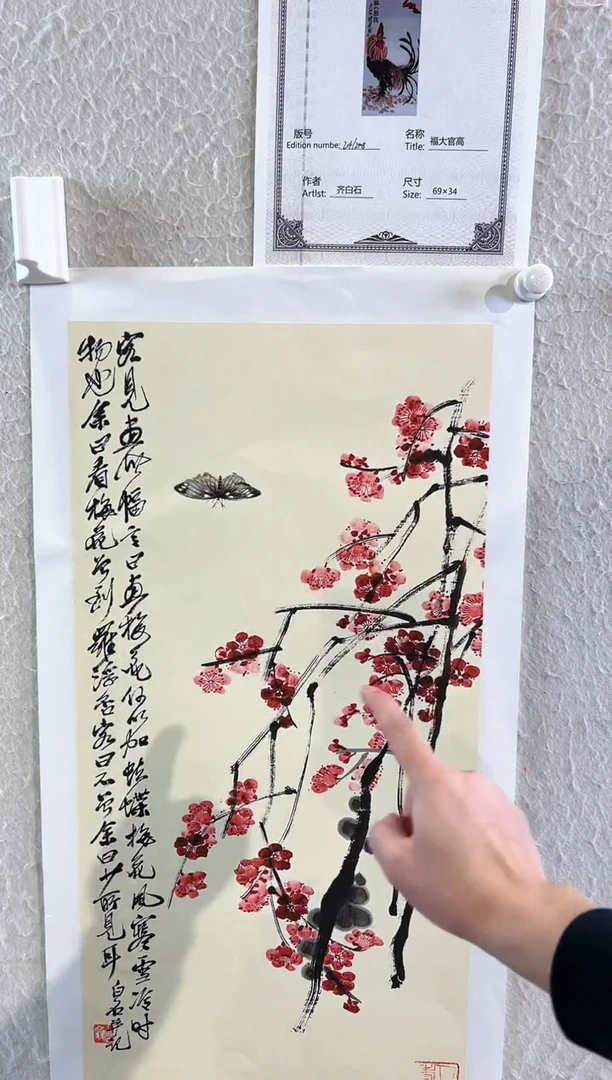 版号
Edition numbe:
名称
Title: 福大官高
作者
Artlst: 齐白石
尺寸
Size: 69×34
客見畫此幅言曰畫梅花何以加蛺蝶梅花風寒雪冷時
物也余曰看梅花曾到羅浮否客曰不曾余曰少所見耳
白石并記